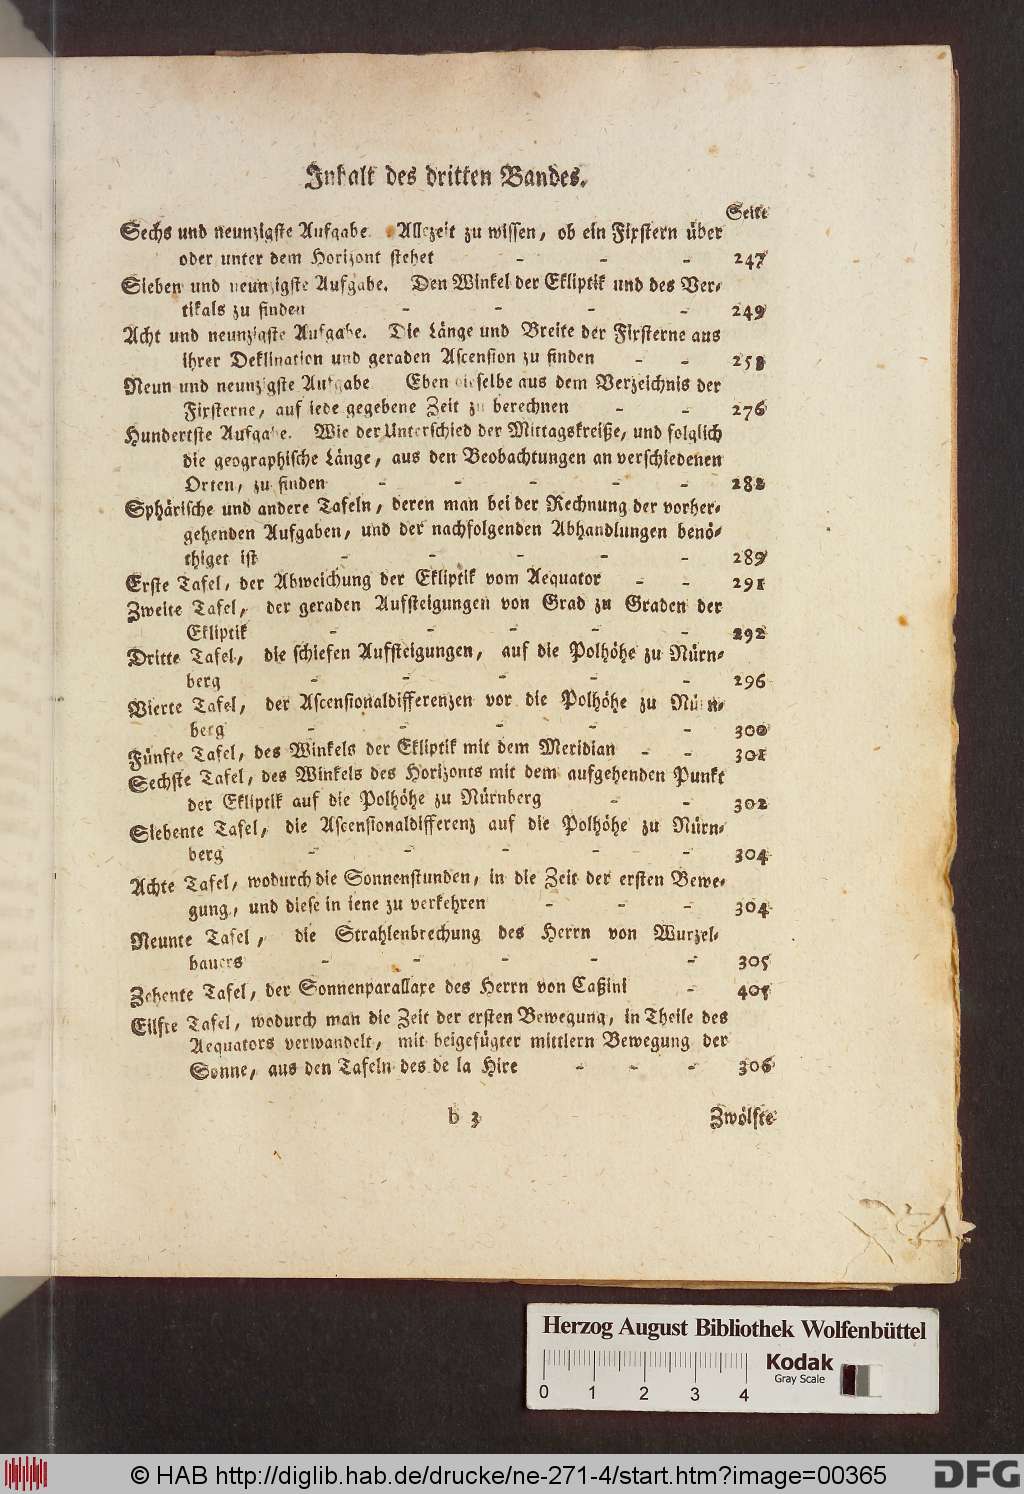 Inhalt des dritten Bandes.
Seite
Sechs und neunzigste Aufgabe. Allezeit zu wissen, ob ein Fixstern über
oder unter dem Horizont stehet - - - 247
Sieben und neunzigste Aufgabe. Den Winkel der Ekliptik und des Ver-
tikals zu finden - - - - 249
Acht und neunzigste Aufgabe. Die Länge und Breite der Fixsterne aus
ihrer Deklination und geraden Ascension zu finden - - 253
Neun und neunzigste Aufgabe Eben dieselbe aus dem Verzeichnis der
Fixsterne, auf iede gegebene Zeit zu berechnen - - 276
Hundertste Aufgabe. Wie der Unterschied der Mittagskreiße, und folglich
die geographische Länge, aus den Beobachtungen an verschiedenen
Orten, zu finden - - - - - 282
Sphärische und andere Tafeln, deren man bei der Rechnung der vorher-
gehenden Aufgaben, und der nachfolgenden Abhandlungen benö-
thiget ist - - - - - 289
Erste Tafel, der Abweichung der Ekliptik vom Aequator - - 291
Zweite Tafel, der geraden Aufsteigungen von Grad zu Graden der
Ekliptik - - - - - 292
Dritte Tafel, die schiefen Aufsteigungen, auf die Polhöhe zu Nürn-
berg - - - - - 296
Vierte Tafel, der Ascensionaldifferenzen vor die Polhöhe zu Nürn-
berg - - - - - 300
Fünfte Tafel, des Winkels der Ekliptik mit dem Meridian - - 301
Sechste Tafel, des Winkels des Horizonts mit dem aufgehenden Punkt
der Ekliptik auf die Polhöhe zu Nürnberg - - 302
Siebente Tafel, die Ascensionaldifferenz auf die Polhöhe zu Nürn-
berg - - - - - 304
Achte Tafel, wodurch die Sonnenstunden, in die Zeit der ersten Bewe-
gung, und diese in iene zu verkehren - - - 304
Neunte Tafel, die Strahlenbrechung des Herrn von Wurzel-
bauers - - - - - 305
Zehente Tafel, der Sonnenparallaxe des Herrn von Caßini - 405
Eilfte Tafel, wodurch man die Zeit der ersten Bewegung, in Theile des
Aequators verwandelt, mit beigefügter mittlern Bewegung der
Sonne, aus den Tafeln des de la Hire - - - 306
b 3 Zwölfte
Herzog August Bibliothek Wolfenbüttel
Kodak
Gray Scale
0 1 2 3 4
© HAB http://diglib.hab.de/drucke/ne-271-4/start.htm?image=00365
DFG